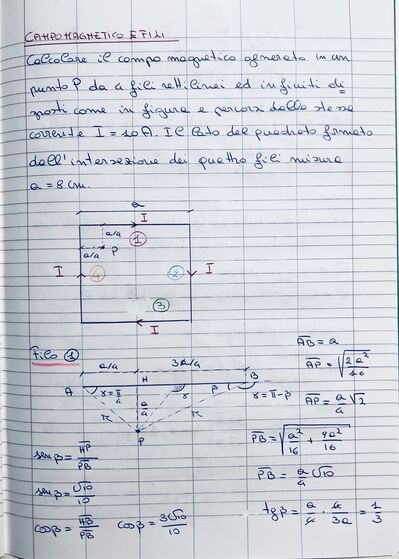 CAMPO MAGNETICO E FILI
Calcolare il campo magnetico generato in un
punto P da 4 fili rettilinei ed infiniti di
sposti come in figura e percorsi dalla stessa
corrente I = 10 A. Il lato del quadrato formato
dall'intersezione dei quattro fili misura
a = 8 cm.
a
I
a/4
1
a/4
P
I
4
2
I
3
I
Filo 1
a/4
3a/4
A
H
B
γ = π/4
a/4
γ
β
γ = π-β
r
r
P
AB = a
AP = √(2a²/16)
AP = a/4 √2
PB = √(a²/16 + 9a²/16)
PB = a/4 √10
tg β = a/4 · 4/3a = 1/3
sen β = HP/PB
sen β = √10/10
cos β = HB/PB
cos β = 3√10/10